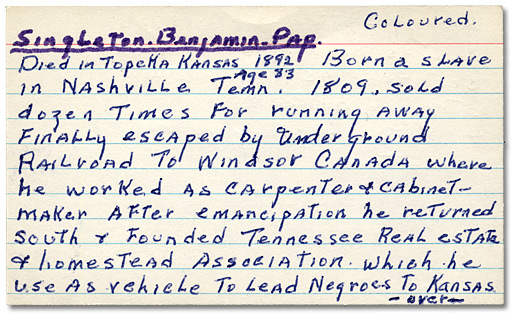 Coloured.
Singleton. Benjamin. Pap.
Died in Topeka Kansas 1892 Born a slave
Age 83
in Nashville Tenn. 1809, sold
dozen Times For running away
Finally escaped by Underground
Railroad To Windsor Canada where
he worked as carpenter & cabinet-
maker After emancipation he returned
South & Founded Tennessee Real estate
& homestead Association. which he
use As vehicle To Lead Negroes To Kansas
- over -